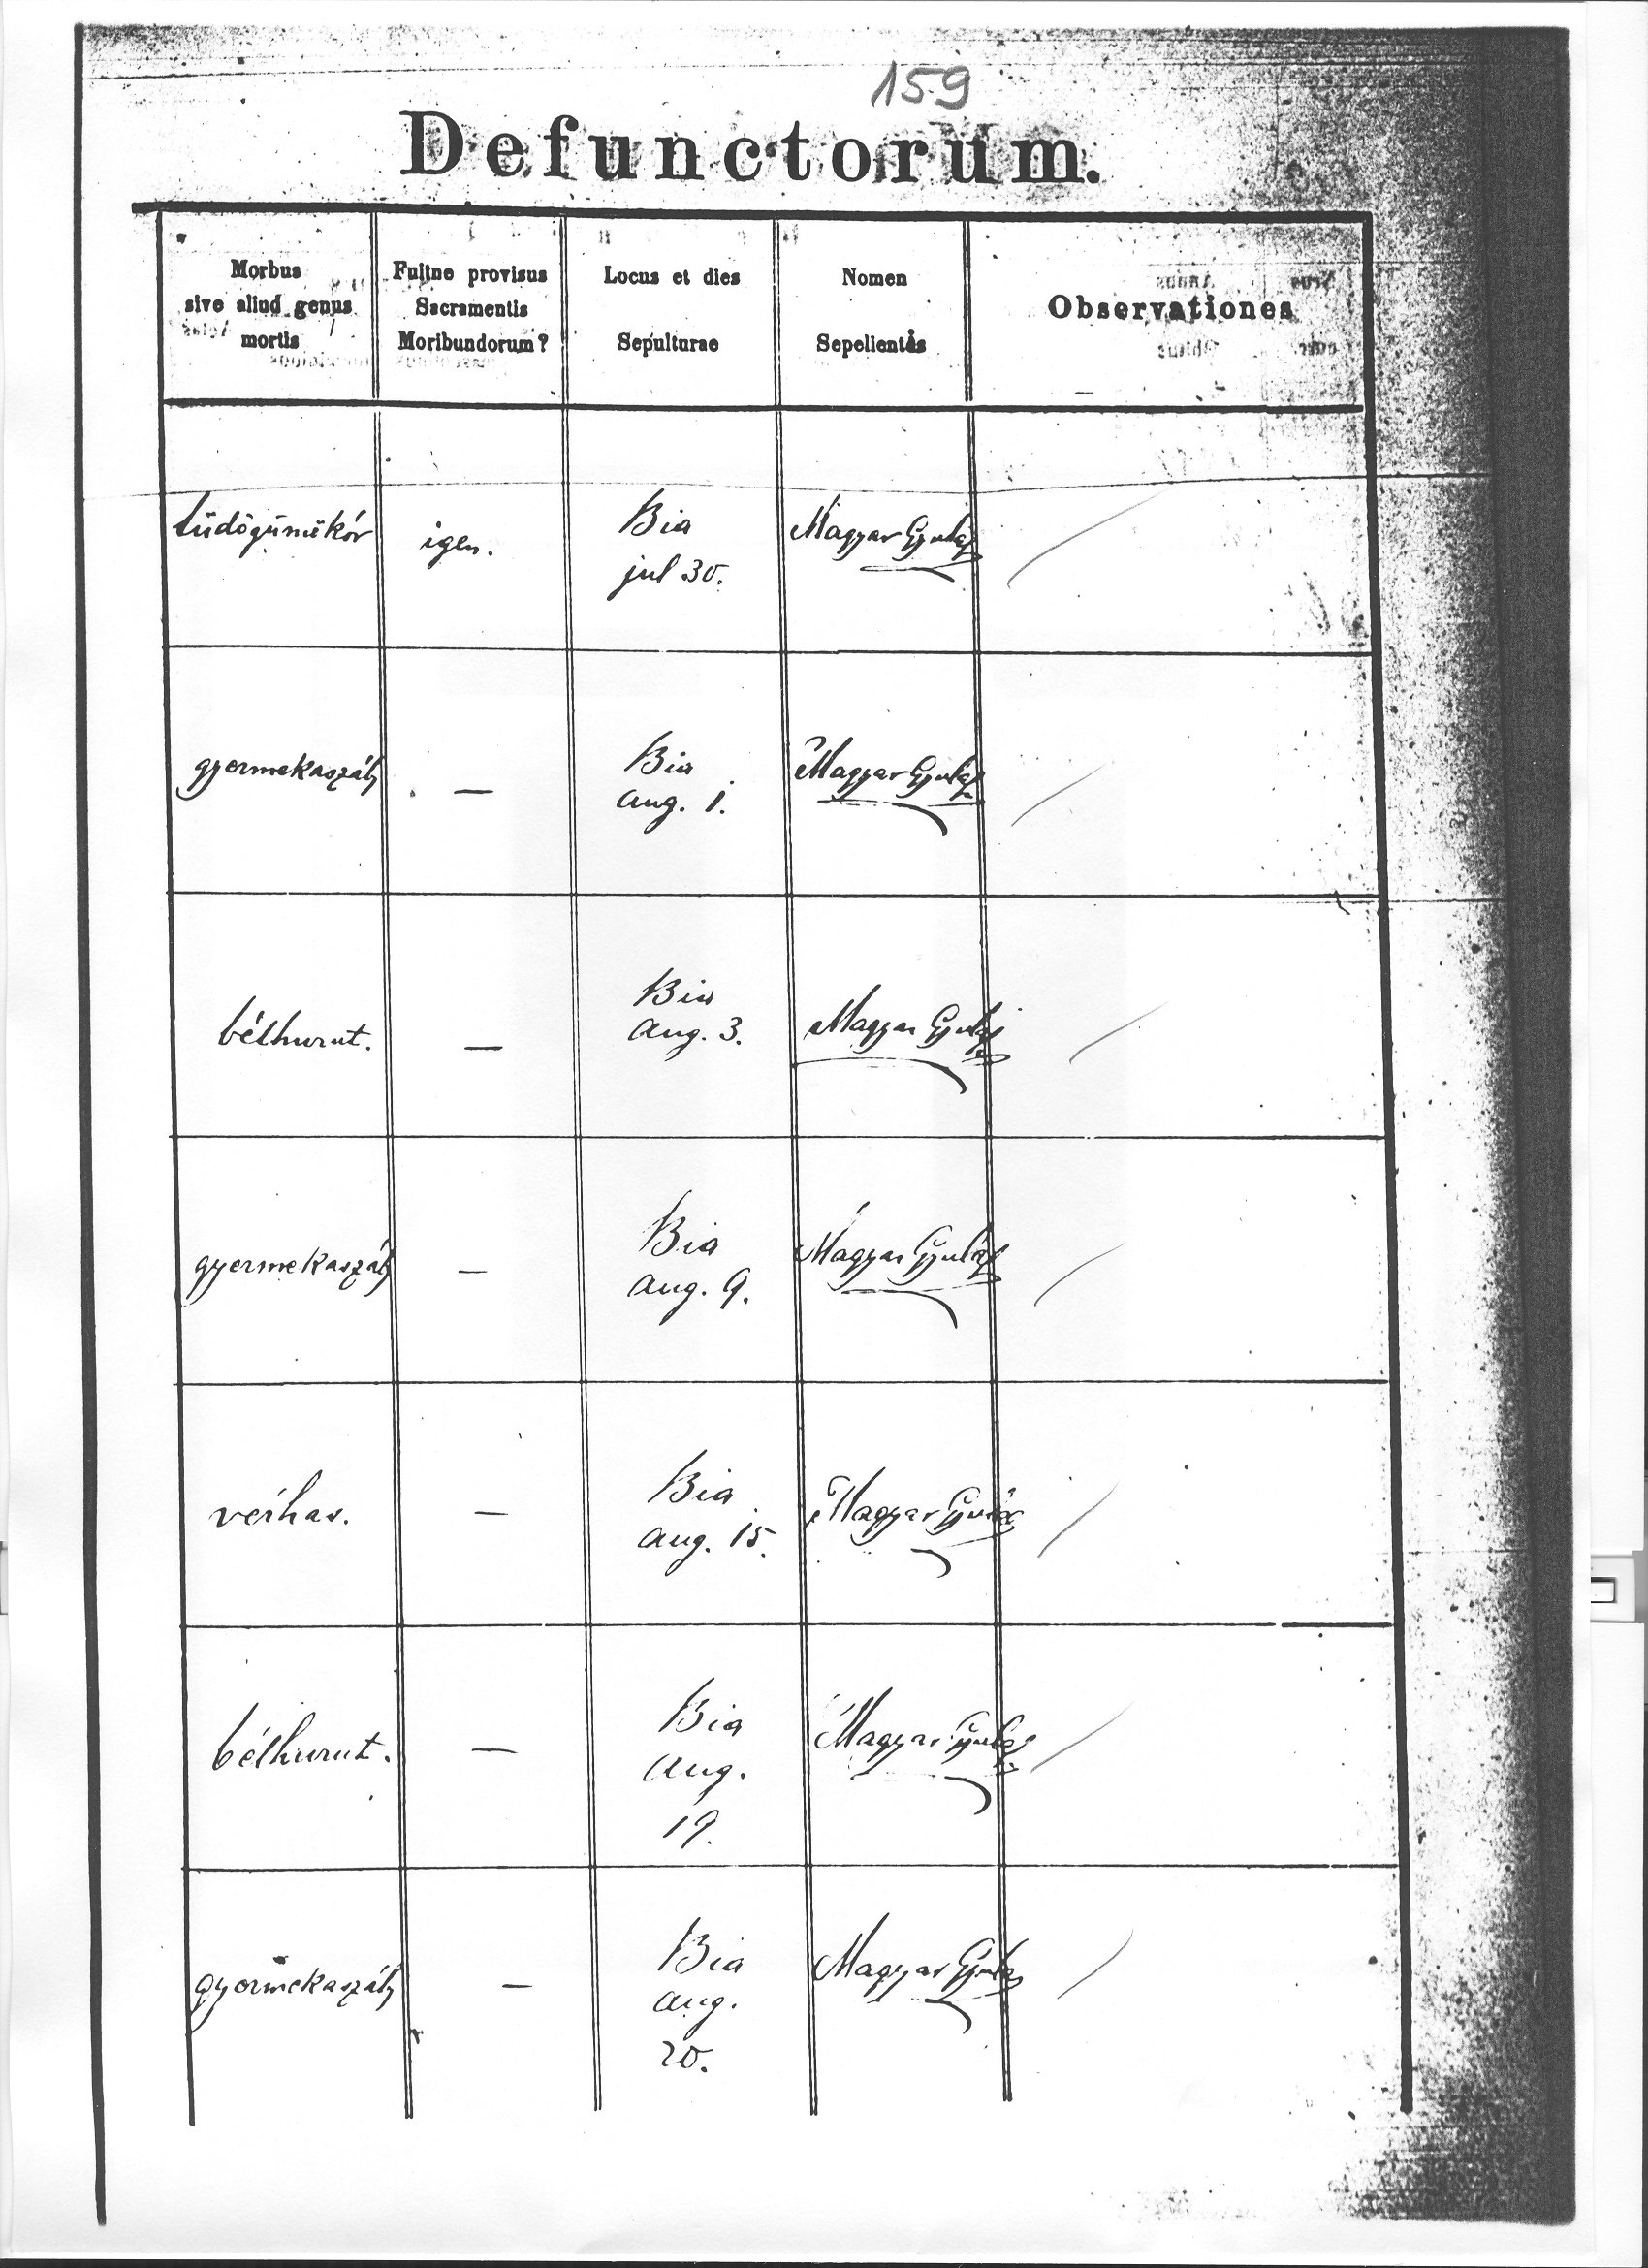 159
Defunctorum.
Morbus
sive aliud genus
mortis
Fuitne provisus
Sacramentis
Moribundorum?
Locus et dies
Sepulturae
Nomen
Sepelientis
Observationes
tüdőgümőkór
igen.
Bia
jul 30.
Magyar Gyula
gyermekaszály
—
Bia
aug. 1.
Magyar Gyula
bélhurut.
—
Bia
aug. 3.
Magyar Gyula
gyermekaszály
—
Bia
aug. 9.
Magyar Gyula
vérhas.
—
Bia
aug. 15.
Magyar Gyula
bélhurut.
—
Bia
aug.
19.
Magyar Gyula
gyermekaszály
—
Bia
aug.
20.
Magyar Gyula